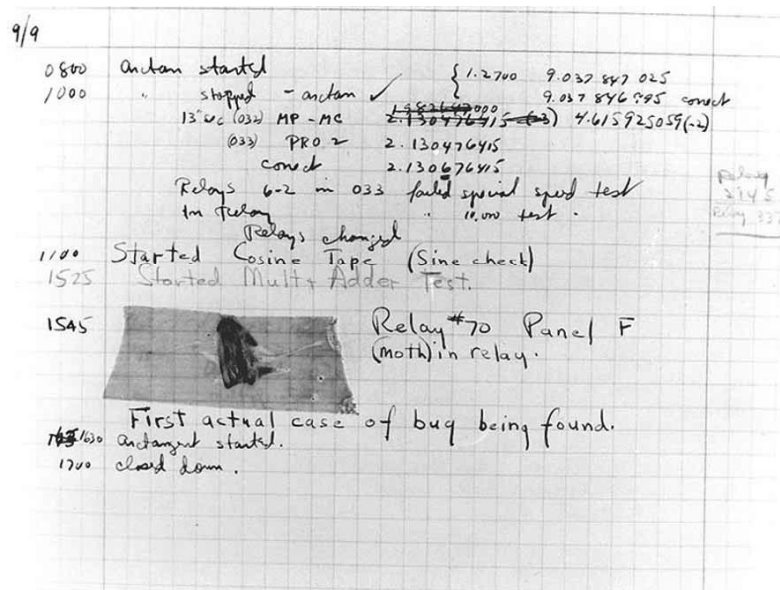 9/9
0800 Antan started { 1.2700 9.037 847 025
1000 " stopped - antan ✓ 9.037 846 795 conect
13"uc (032) MP - MC 2.130476415 (-3) 4.615925059(-2)
(033) PRO 2 2.130476415
conect 2.130676415
Relays 6-2 in 033 failed special speed test
In Relay " 10,000 test .
Relays changed
1100 Started Cosine Tape (Sine check)
1525 Started Mult + Adder Test.
1545 Relay #70 Panel F
(moth) in relay.
First actual case of bug being found.
1630 Antangent started.
1700 closed down.
Relay
Relay